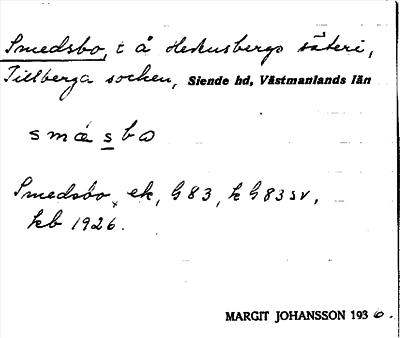 Smedsbo, t å Hedensbergs säteri,
Tillberga socken, Siende hd, Västmanlands län
smésbω
Smedsbo, ek, G83, k G83SV,
kb 1926.
MARGIT JOHANSSON 1936.